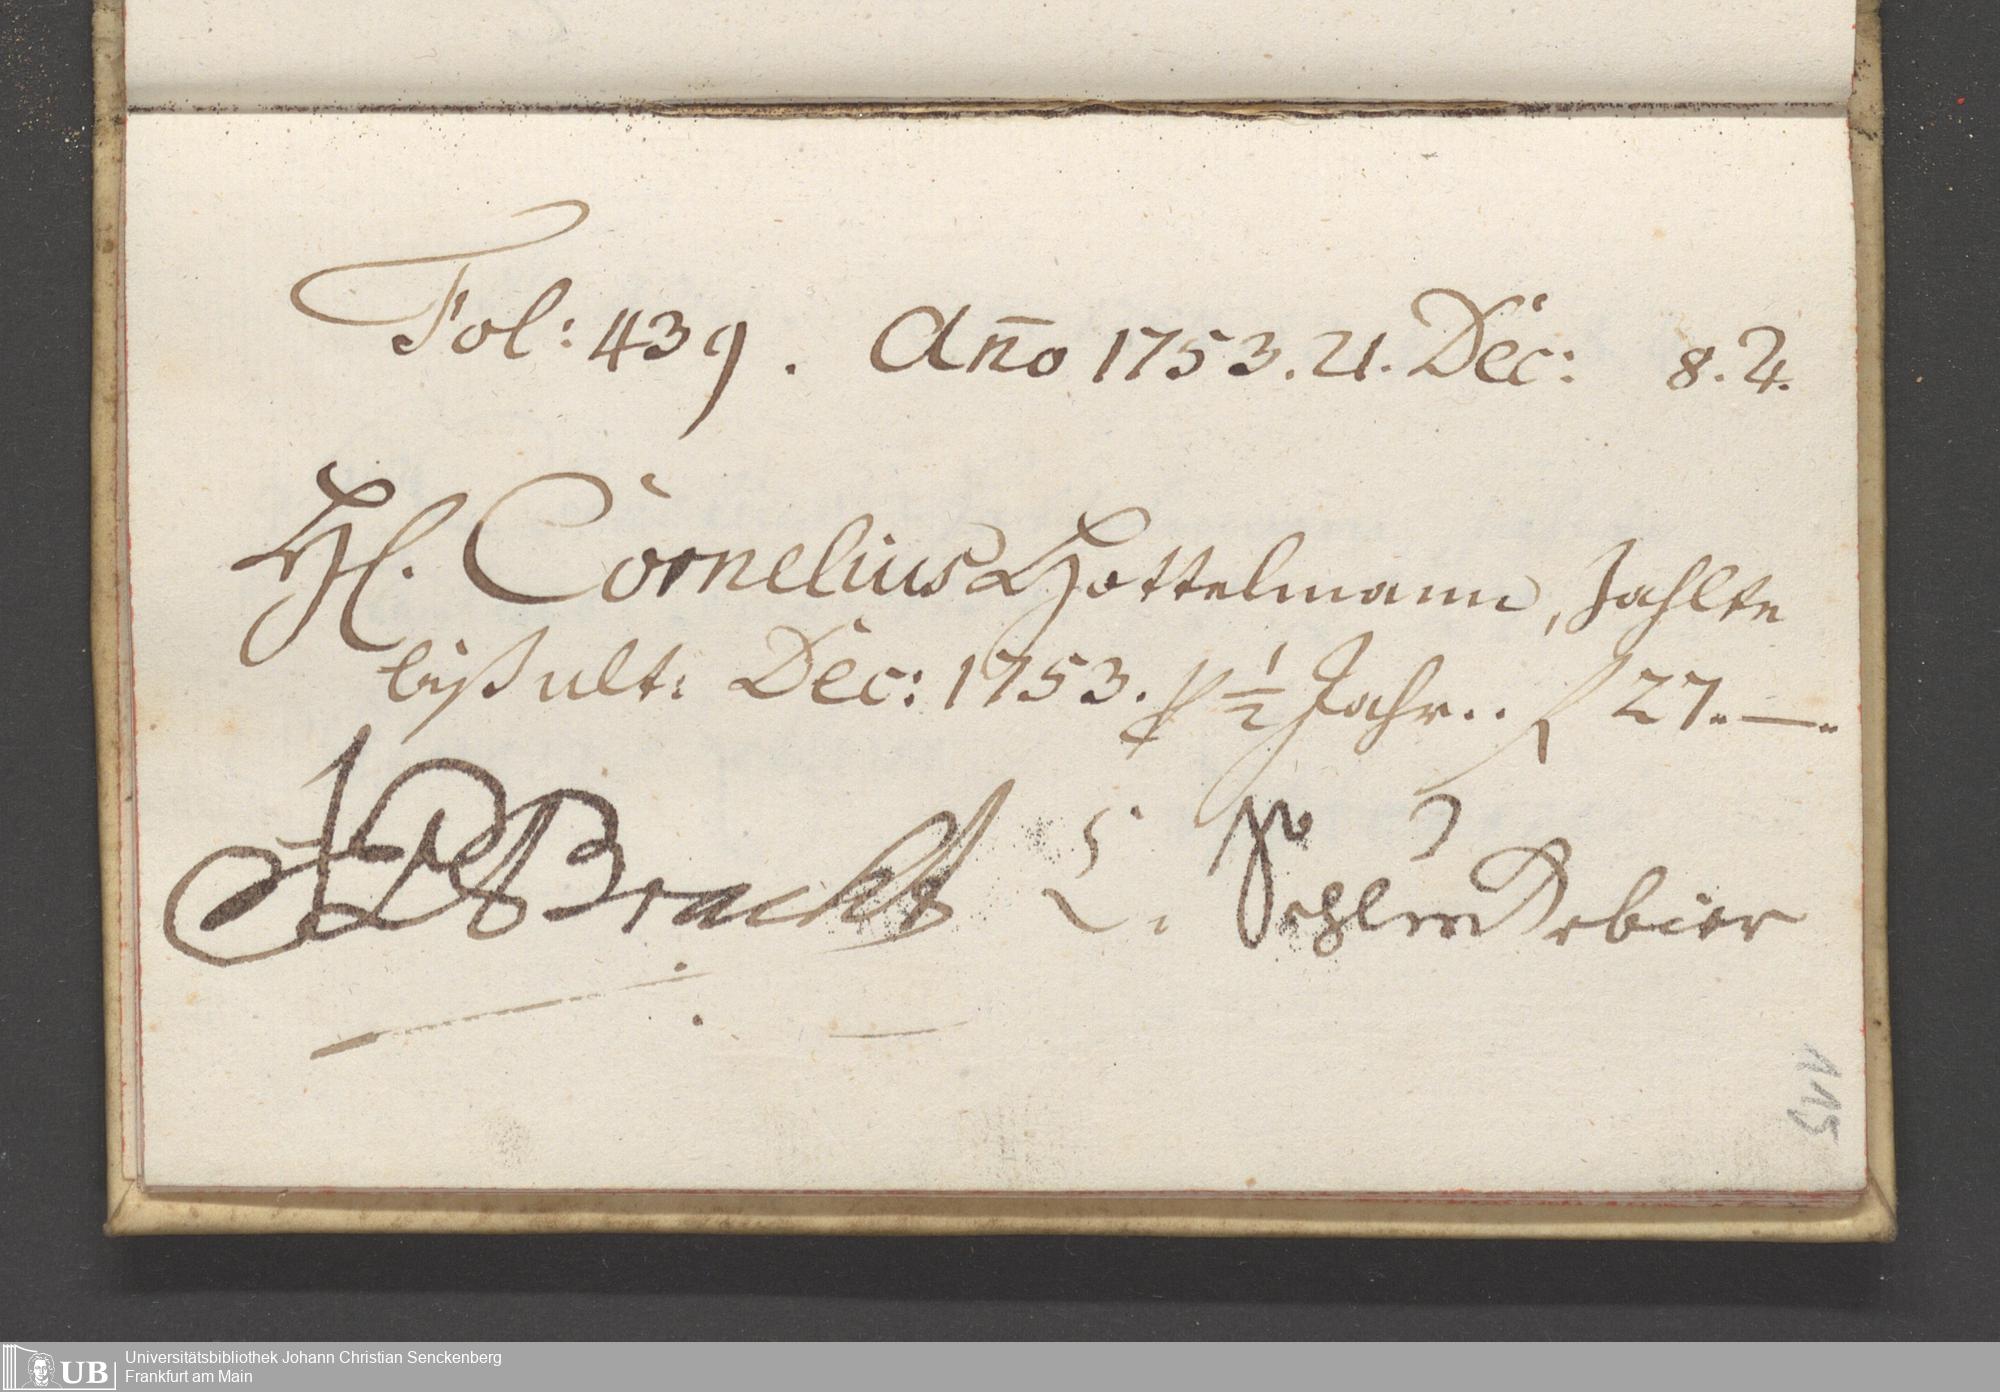 Fol: 439. Año 1753. 21. Dec: 8. 2.
Hl. Cornelius Hottelmann, Zahlte
biß ult: Dec: 1753. p ½ Jahr.. f 27. —.
Bracht
115
UB Universitätsbibliothek Johann Christian Senckenberg
Frankfurt am Main